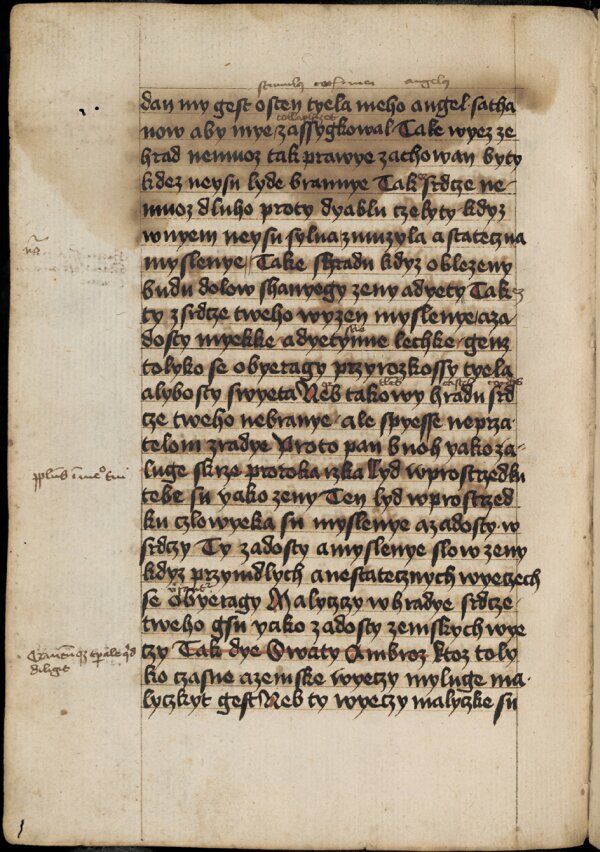 stimulus carnis mee angelus
dan my gest osten tyela meho angel satha
now aby mye zassygkowal Take wyez ze
hrad nemuoz tak prawye zachowan byty
kdez neysu lyde brannye Tak srdcze ne
muoz dluho proty dyablu czelyty kdyz
wnyem neysu sylna zmuzyla a stateczna
myslenye Take s hradu kdyz oblezeny
budu dolow shanyegy zeny a dyety Takez
ty z srdcze tweho wyzen myslenye a za
dosty myekke a dyetynnye lechke genz
tolyko se obyeragy przy rozkossy tyela
alybosty swyeta Neb takowy hradu srd
cze tweho nebranye ale spyesse neprza
telom zradye Proto pan buoh yako za
luge skrze proroka rzka Lyd wprostrzedku
tebe su yako zeny Ten lyd wprostrzed
ku czlowyeka su myslenye a zadosty w
srdczy Ty zadosty a myslenye slow zeny
kdyz przymdlych a nestatecznych wyeczech
se obyeragy Malyczzy w hradye srdcze
tweho gsu yako zadosty zemskych wye
czy Tak dye Swaty Ambroz ktoz toly
ko czasne a zemske wyeczy myluge ma
lyczkyt gest Neb ty wyeczy malyczke su
diligit